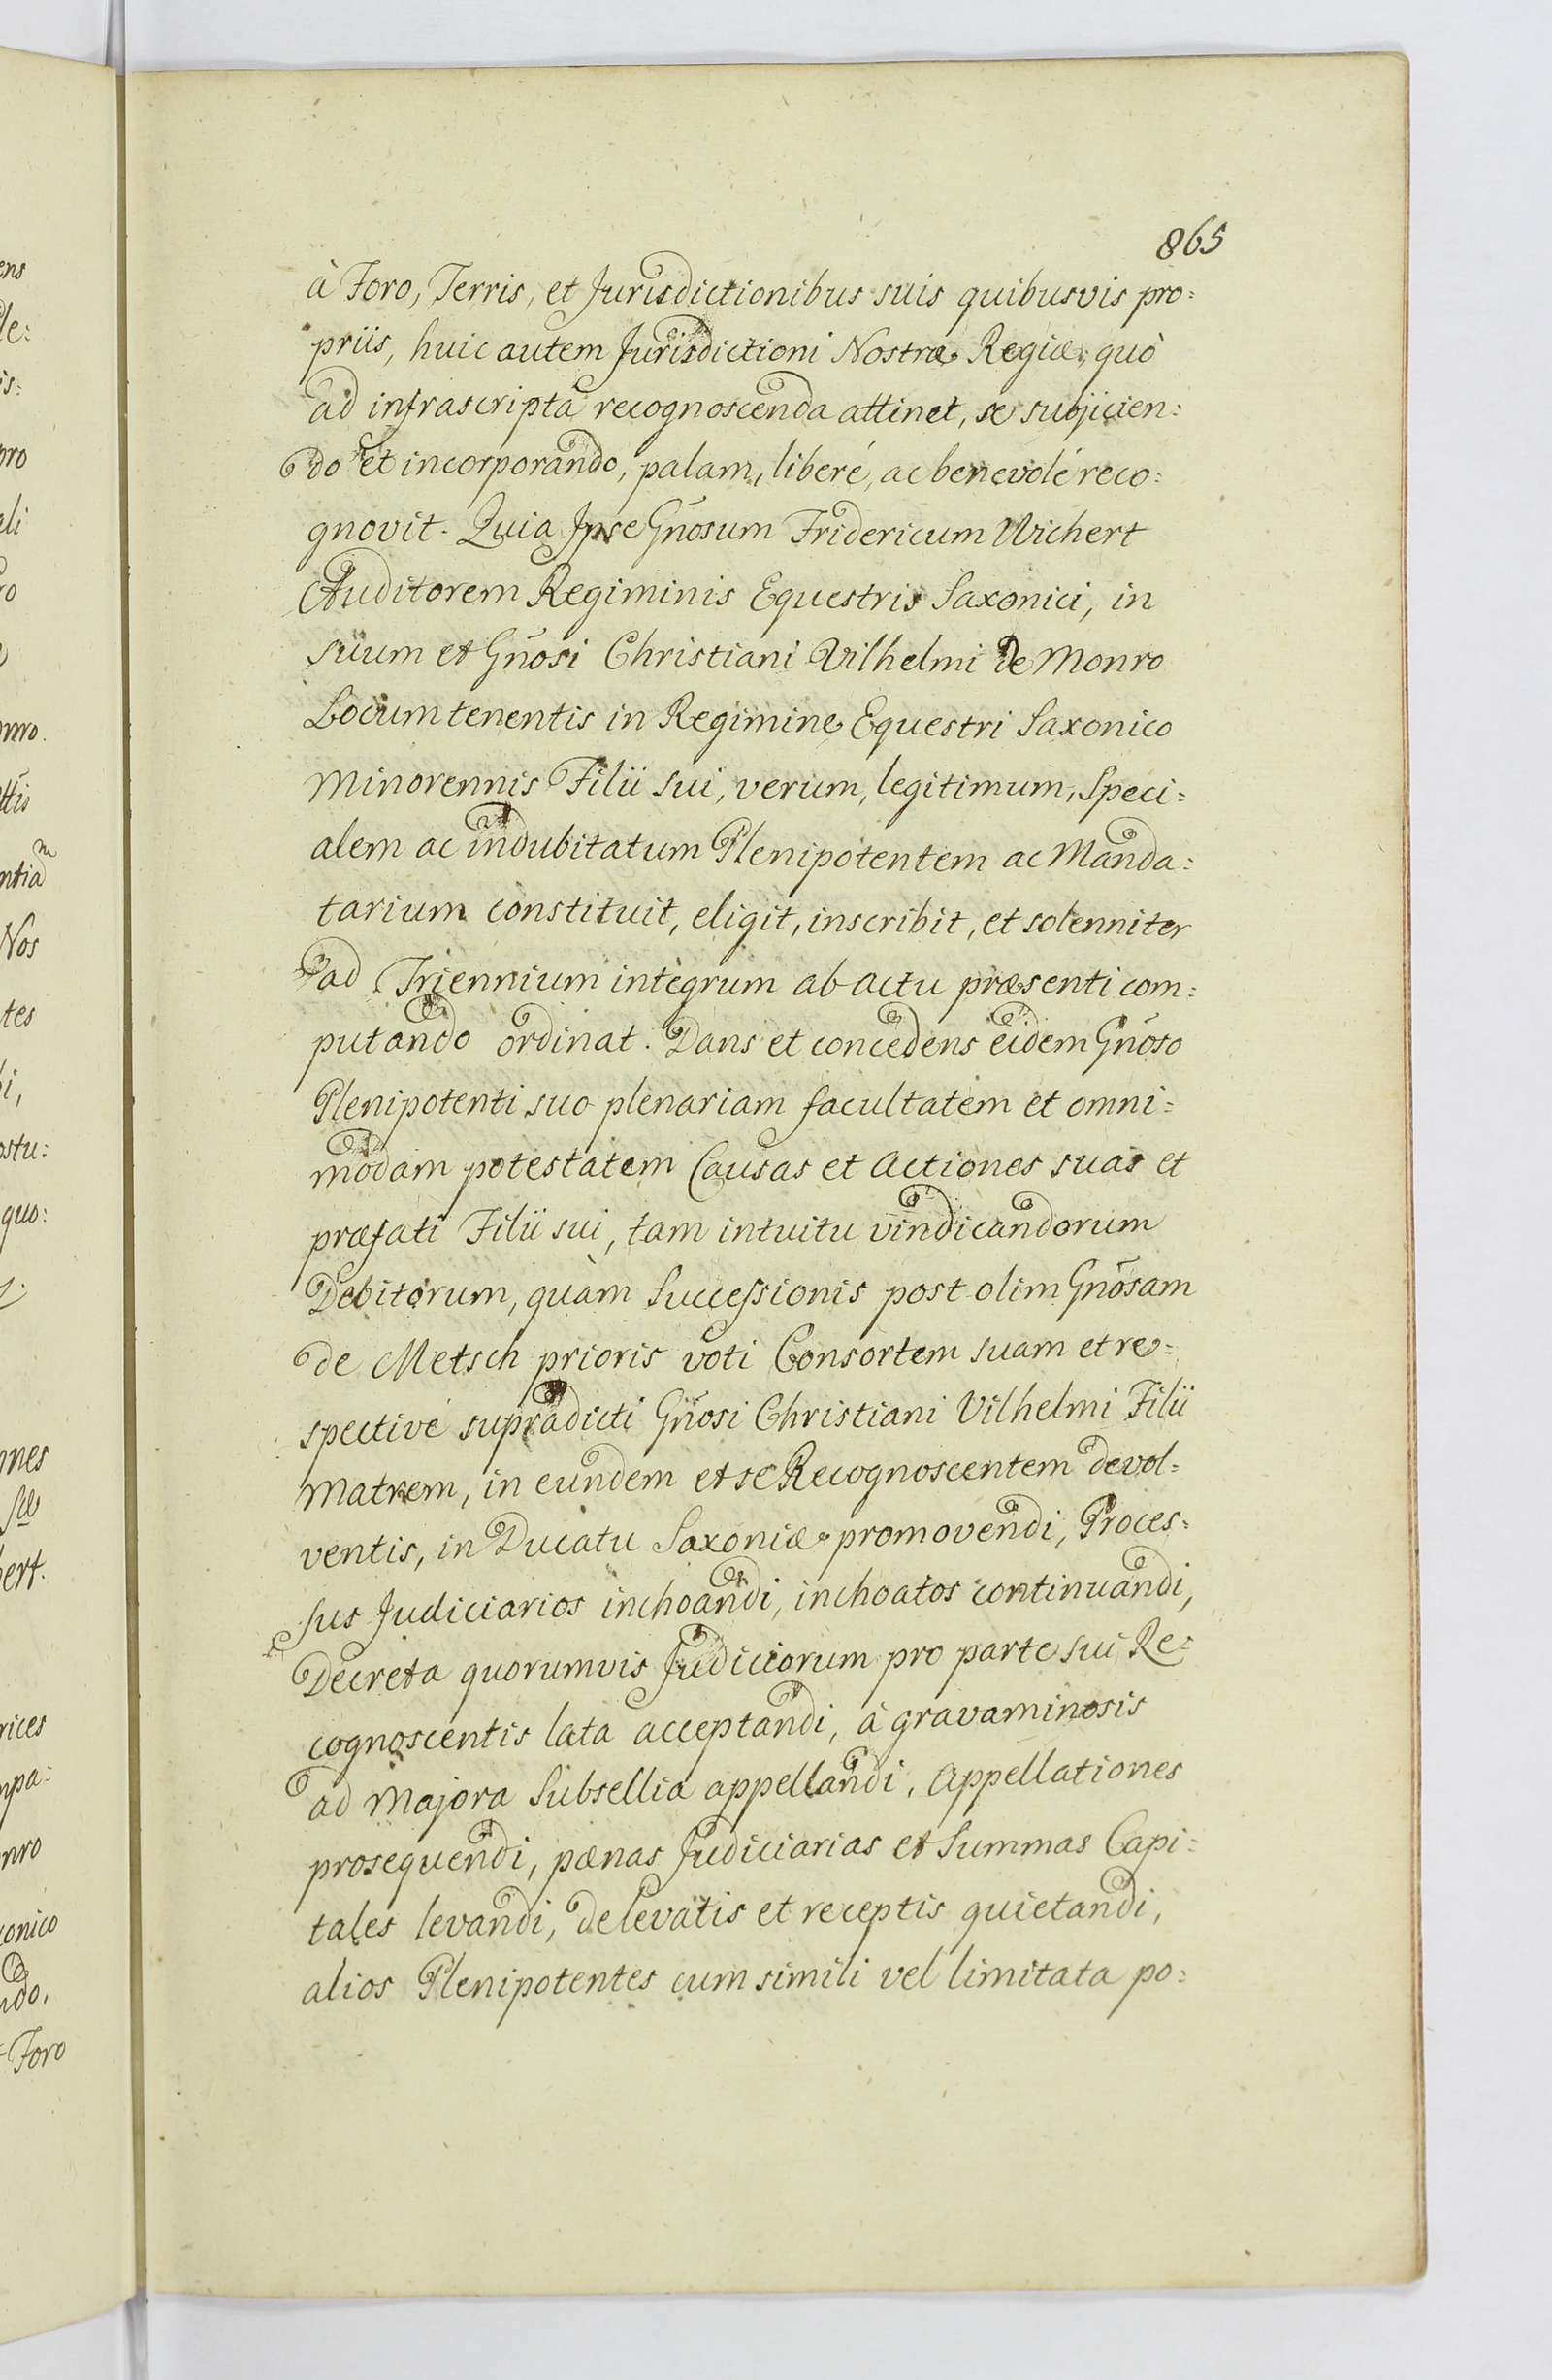 865
à Foro, Terris, et Jurisdictionibus suis quibusvis pro=
priis, huic autem Jurisdictioni Nostræ Regiæ, quò
ad infrascripta recognoscenda attinet, se subjicien=
do et incorporando, palam, liberé, ac benevolé reco=
gnovit. Quia Ipse Gñosum Fridericum Wichert
Auditorem Regiminis Equestris Saxonici, in
suum et Gñosi Christiani Vilhelmi de Monro
Locumtenentis in Regimine Equestri Saxonico
Minorennis Filii sui, verum, legitimum, Speci=
alem ac indubitatum Plenipotentem ac Manda=
tarium constituit, eligit, inscribit, et solenniter
ad Triennium integrum ab actu præsenti com=
putando ordinat. Dans et concedens eidem Gñoso
Plenipotenti suo plenariam facultatem et omni=
modam potestatem Causas et Actiones suas et
præfati Filii sui, tam intuitu vindicandorum
Debitorum, quàm Successionis post olim Gñosam
de Metsch prioris voti Consortem suam et re=
spectivé supradicti Gñosi Christiani Vilhelmi Filii
Matrem, in eundem et se Recognoscentem devol=
ventis, in Ducatu Saxoniæ promovendi, Proces=
sus Judiciarios inchoandi, inchoatos continuandi,
Decreta quorumvis Judiciorum pro parte sui Re=
cognoscentis lata acceptandi, à gravaminosis
ad Majora Subsellia appellandi, Appellationes
prosequendi, pænas Judiciarias et Summas Capi=
tales levandi, de levatis et receptis quietandi,
alios Plenipotentes cum simili vel limitata po=